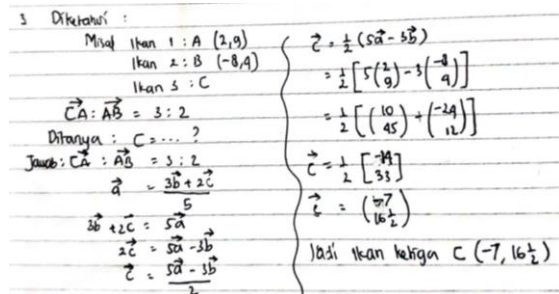 3 Diketahui :
Misal Ikan 1 : A (2,9)
Ikan 2 : B (-8,4)
Ikan 3 : C
→CA : →AB = 3 : 2
Ditanya : C = ... ?
Jawab : →CA : →AB = 3 : 2
→a = (3→b + 2→c)/5
3→b + 2→c = 5→a
2→c = 5→a - 3→b
→c = (5→a - 3→b)/2
→c = 1/2 (5→a - 3→b)
= 1/2 [5(2 9) - 3(-8 4)]
= 1/2 [(10 45) + (-24 12)]
→c = 1/2 [-14 33]
→c = (-7 16 1/2)
Jadi Ikan ketiga C (-7, 16 1/2)